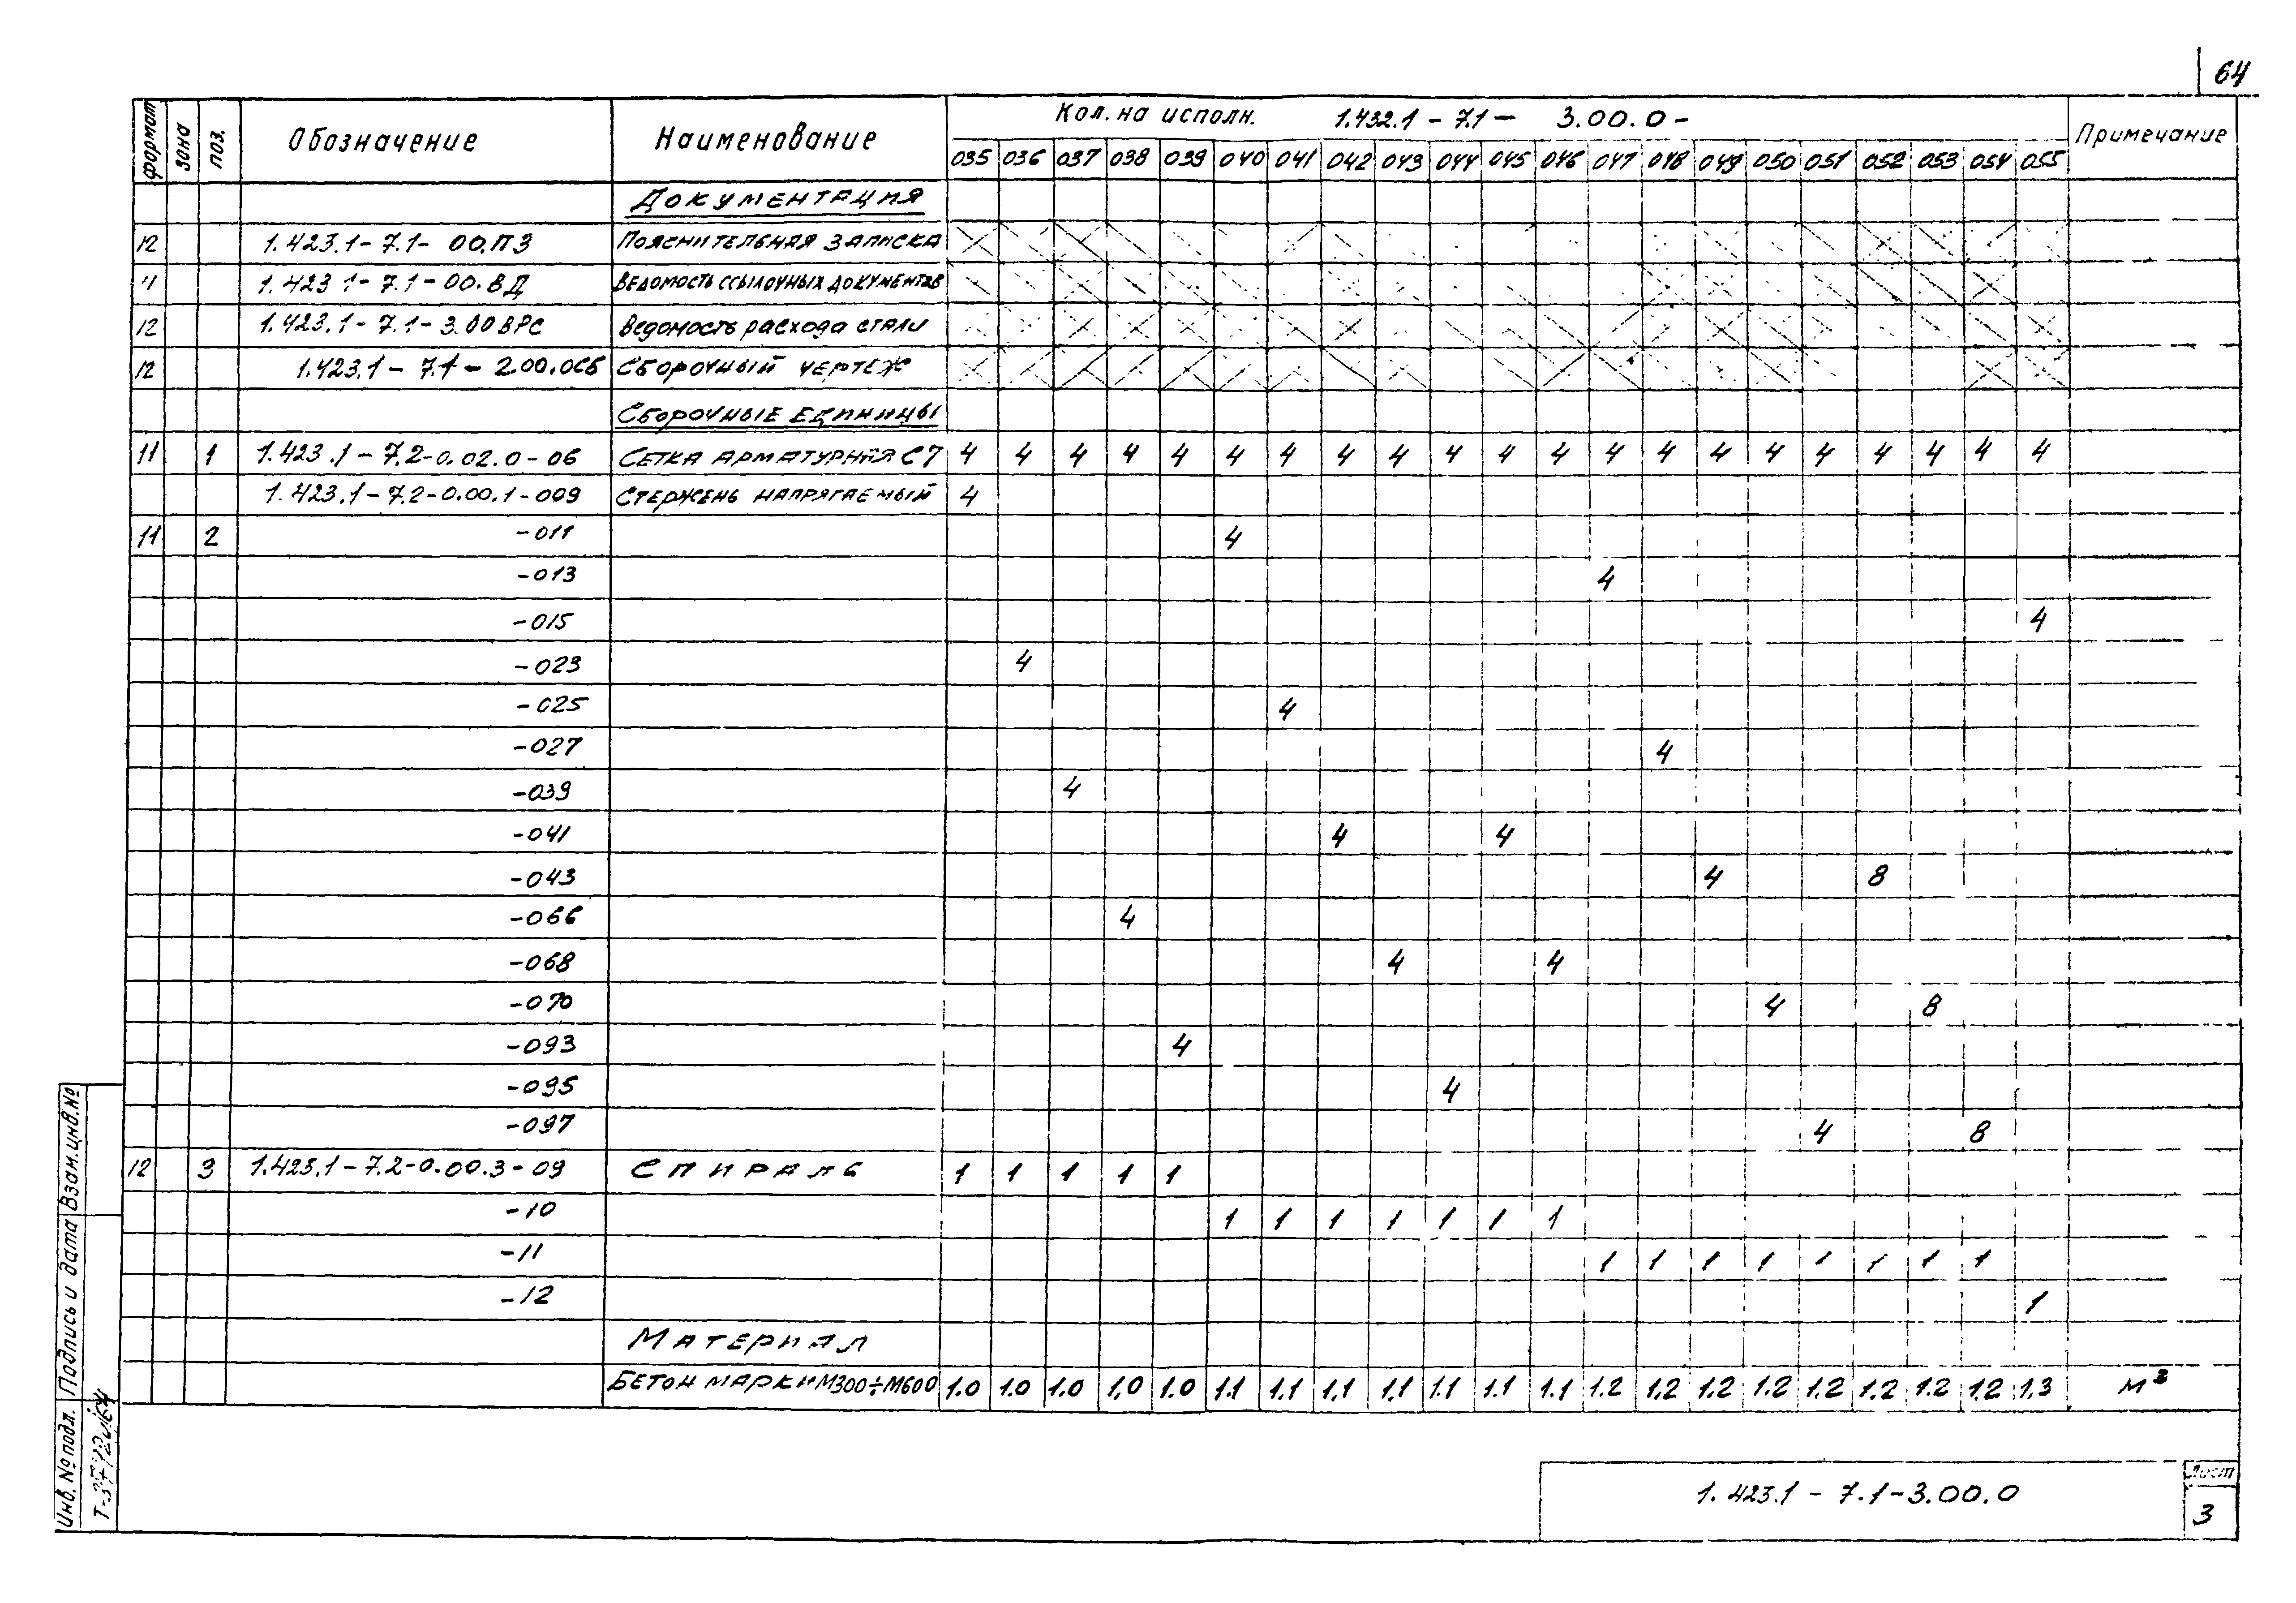 64
формат зона поз. Обозначение Наименование Кол. на исполн. 1.432.1 - 7.1 - 3.00.0 - Примечание
035 036 037 038 039 040 041 042 043 044 045 046 047 048 049 050 051 052 053 054 055
Документация
12 1.423.1 - 7.1 - 00.ПЗ Пояснительная записка
11 1.423 1 - 7.1 - 00.ВД Ведомость ссылочных документов
12 1.423.1 - 7.1 - 3.00 ВРС Ведомость расхода стали
12 1.423.1 - 7.1 - 2.00.0СБ Сборочный чертеж
Сборочные единицы
11 1 1.423.1 - 7.2-0.02.0 - 06 Сетка арматурная С7 4 4 4 4 4 4 4 4 4 4 4 4 4 4 4 4 4 4 4 4 4
1.423.1 - 7.2-0.00.1 - 009 Стержень напрягаемый 4
11 2 -011 4
-013 4
-015 4
-023 4
-025 4
-027 4
-039 4
-041 4 4
-043 4 8
-066 4
-068 4 4
-070 4 8
-093 4
-095 4
-097 4 8
12 3 1.423.1 - 7.2-0.00.3 - 09 Спираль 1 1 1 1 1
-10 1 1 1 1 1 1 1
-11 1 1 1 1 1 1 1 1
-12 1
Материал
Бетон марки М300÷М600 1.0 1.0 1.0 1.0 1.0 1.1 1.1 1.1 1.1 1.1 1.1 1.1 1.2 1.2 1.2 1.2 1.2 1.2 1.2 1.2 1.3 м³
Инв. № подл. Подпись и дата Взам. инв. №
1.423.1 - 7.1-3.00.0
Лист
3